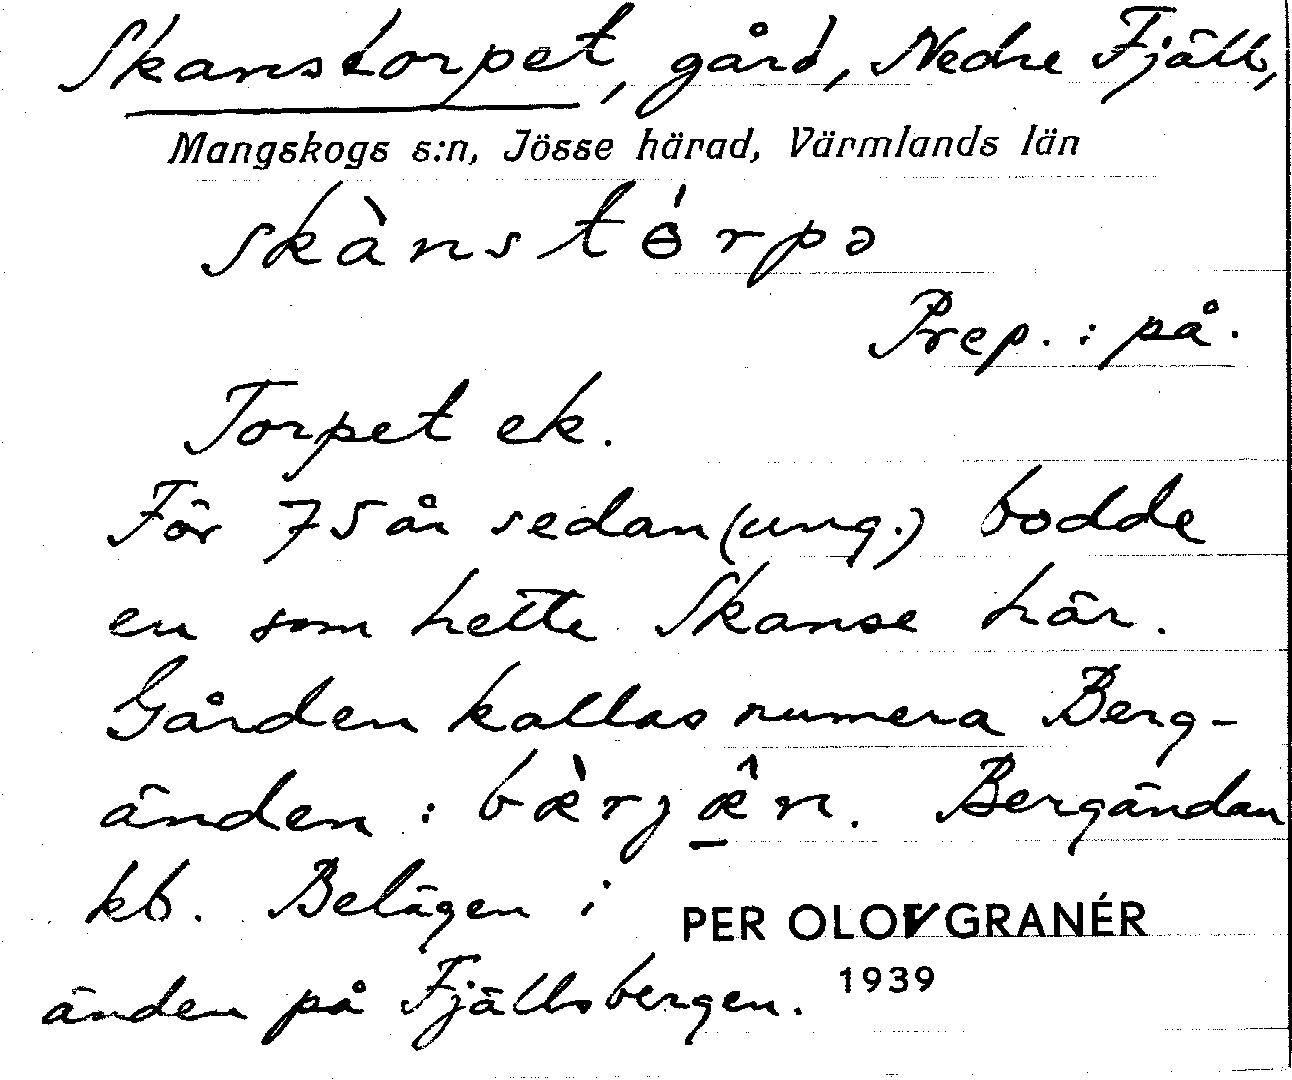 Skanstorpet, gård, Nedre Fjäll,
Mangskogs s:n, Jösse härad, Värmlands län
skànstɵ́rpə
Prep. : på.
Torpet ek.
För 75 år sedan (ung.) bodde
en som hette Skanse här.
Gården kallas numera Berg-
änden : bæ̀rjæ̂n. Bergändan
kb. Belägen i
änden på Fjällsbergen.
PER OLOV GRANÉR
1939